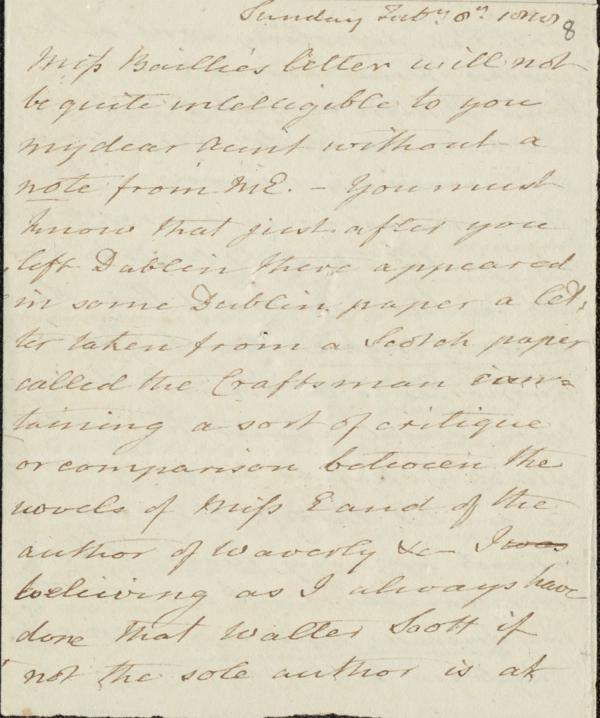 Sunday Feb.y 8th
8
Miss Baillie's letter will not
be quite intelligible to you
my dear Aunt without a
note from ME. - You must
know that just after you
left Dublin there appeared
in some Dublin paper a let-
ter taken from a Scotch paper
called the Craftsman con=
taining a sort of critique
or comparison between the
novels of Miss E and of the
author of Waverly &c - I was
believing as I always have
done that Walter Scott if
not the sole author is at